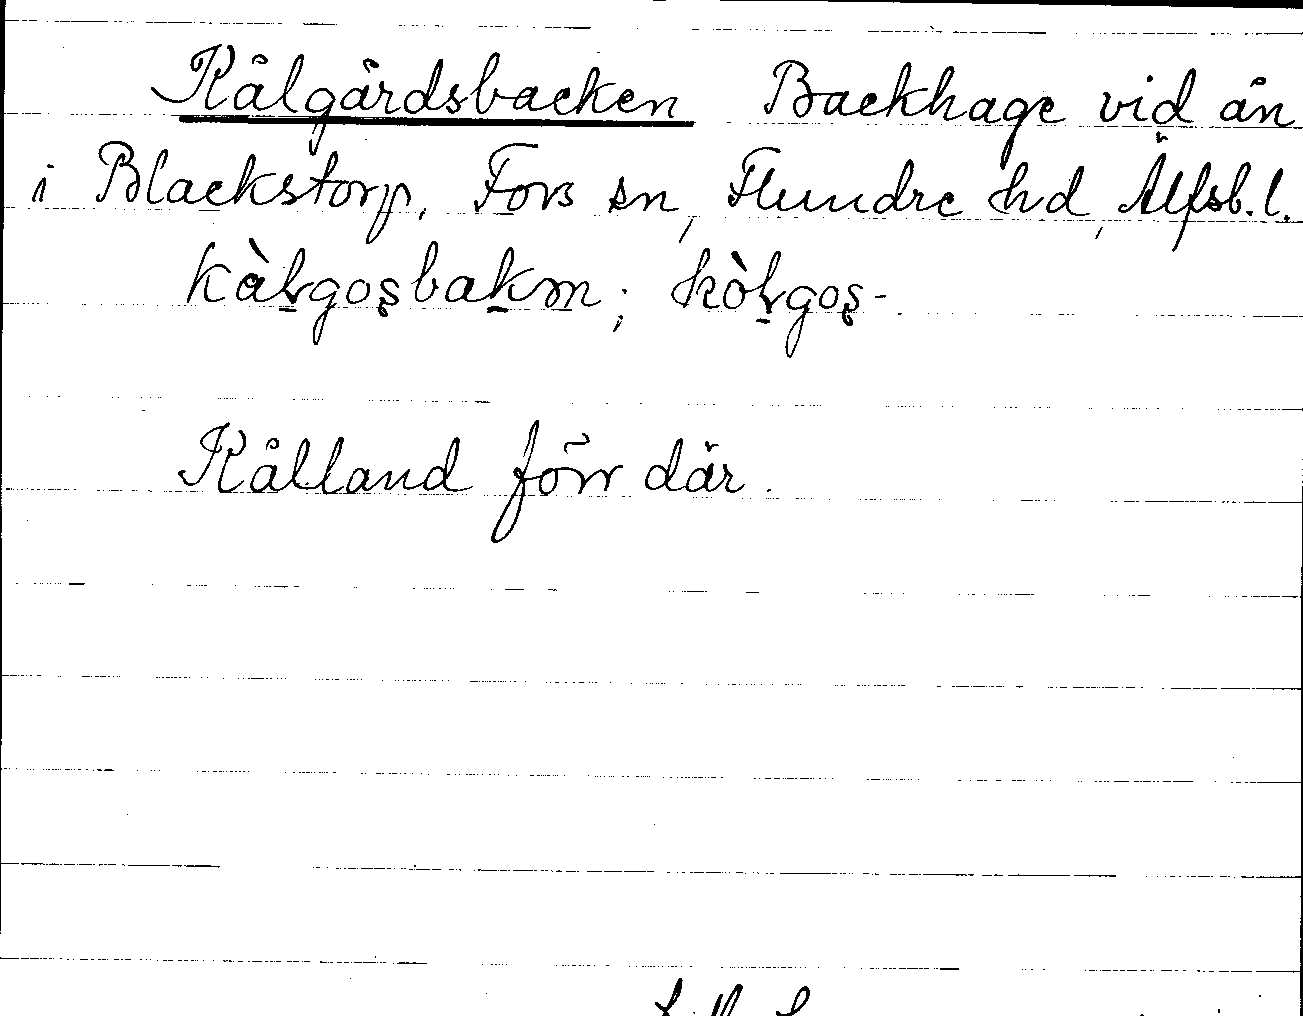 Kålgårdsbacken Backhage vid ån
i Blackstorp, Fors sn, Flundre hd, Älfsb. l.
kàḷgoșbakm; kòḷgoș-.
Kålland förr där.